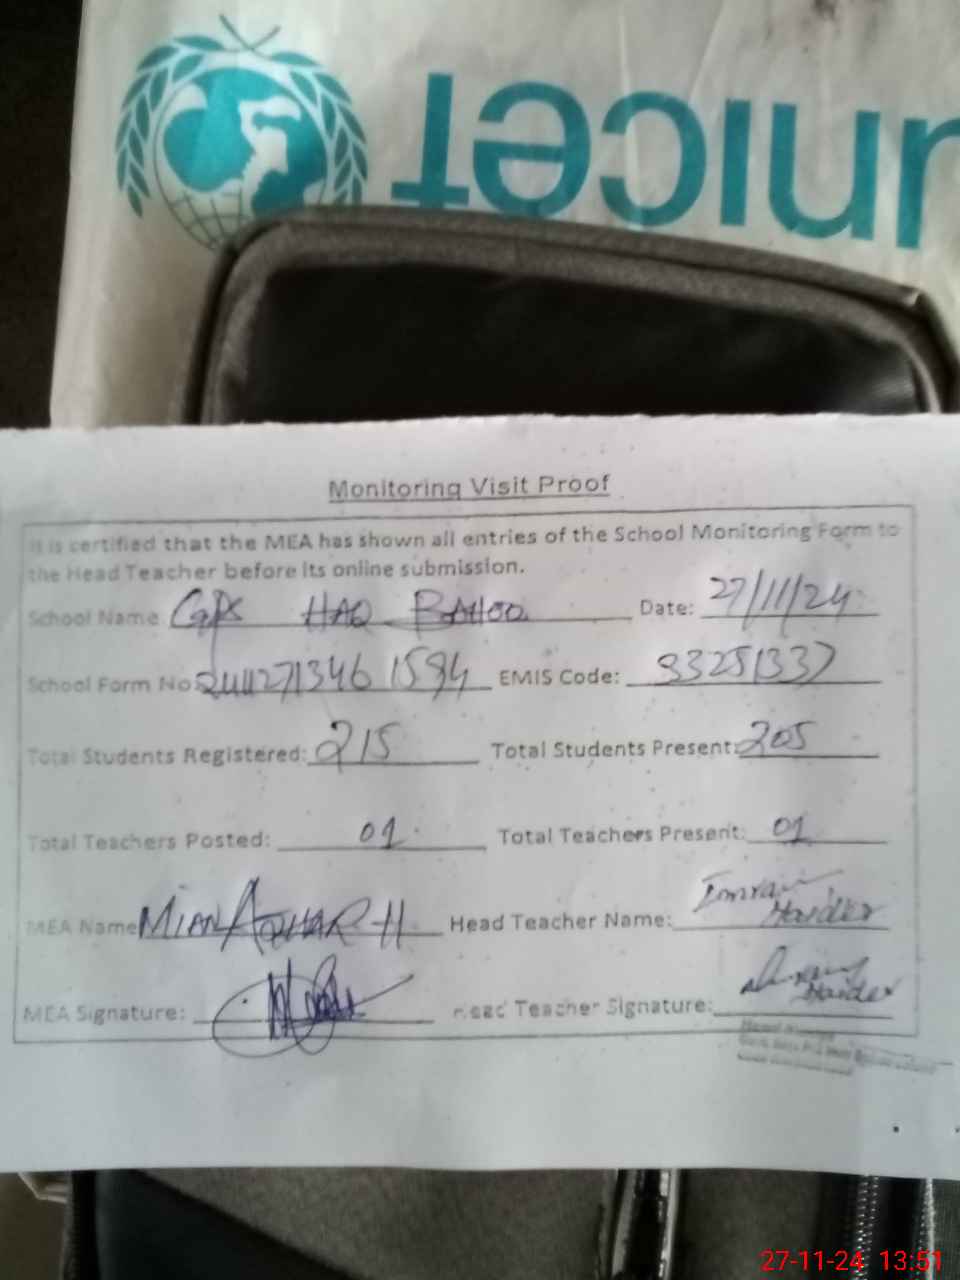 unicef
Monitoring Visit Proof
It is certified that the MEA has shown all entries of the School Monitoring Form to
the Head Teacher before its online submission.
School Name GPS HAQ BAHOO Date: 27/11/24
School Form No 2411271346 1594 EMIS Code: 33251337
Total Students Registered: 215 Total Students Present: 205
Total Teachers Posted: 01 Total Teachers Present: 01
MEA Name MIAN AZHAR H Head Teacher Name: Imran Haider
MEA Signature: Head Teacher Signature: Imran Haider
27-11-24 13:51